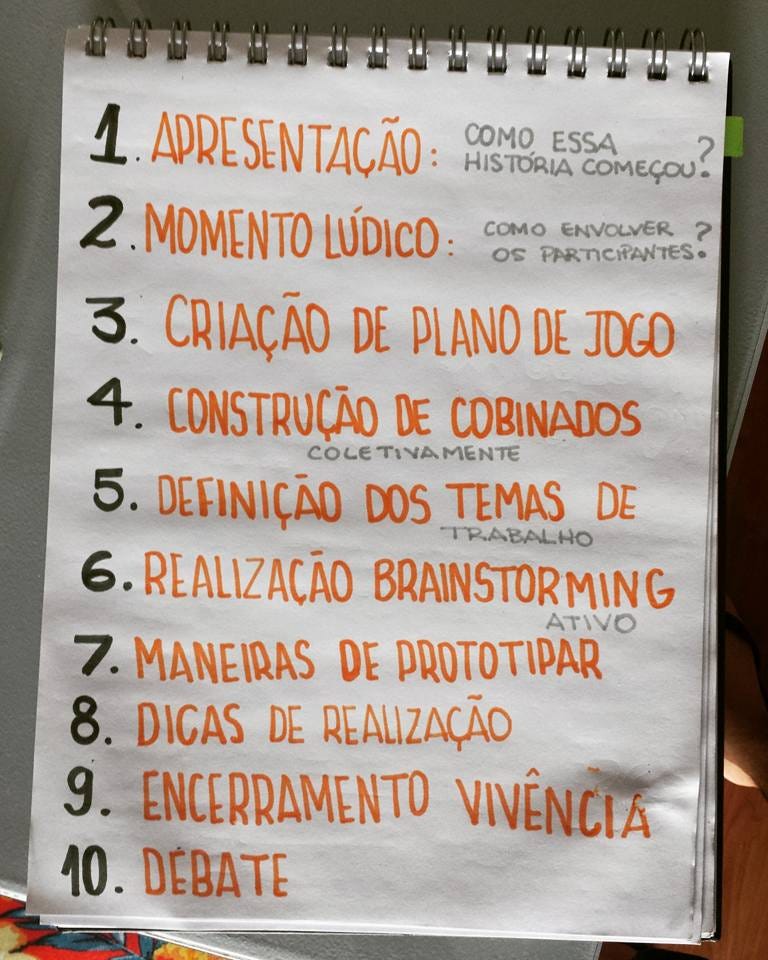 1. APRESENTAÇÃO: COMO ESSA
HISTÓRIA COMEÇOU?
2. MOMENTO LÚDICO: COMO ENVOLVER
OS PARTICIPANTES?
3. CRIAÇÃO DE PLANO DE JOGO
4. CONSTRUÇÃO DE COBINADOS
COLETIVAMENTE
5. DEFINIÇÃO DOS TEMAS DE
TRABALHO
6. REALIZAÇÃO BRAINSTORMING
ATIVO
7. MANEIRAS DE PROTOTIPAR
8. DICAS DE REALIZAÇÃO
9. ENCERRAMENTO VIVÊNCIA
10. DEBATE